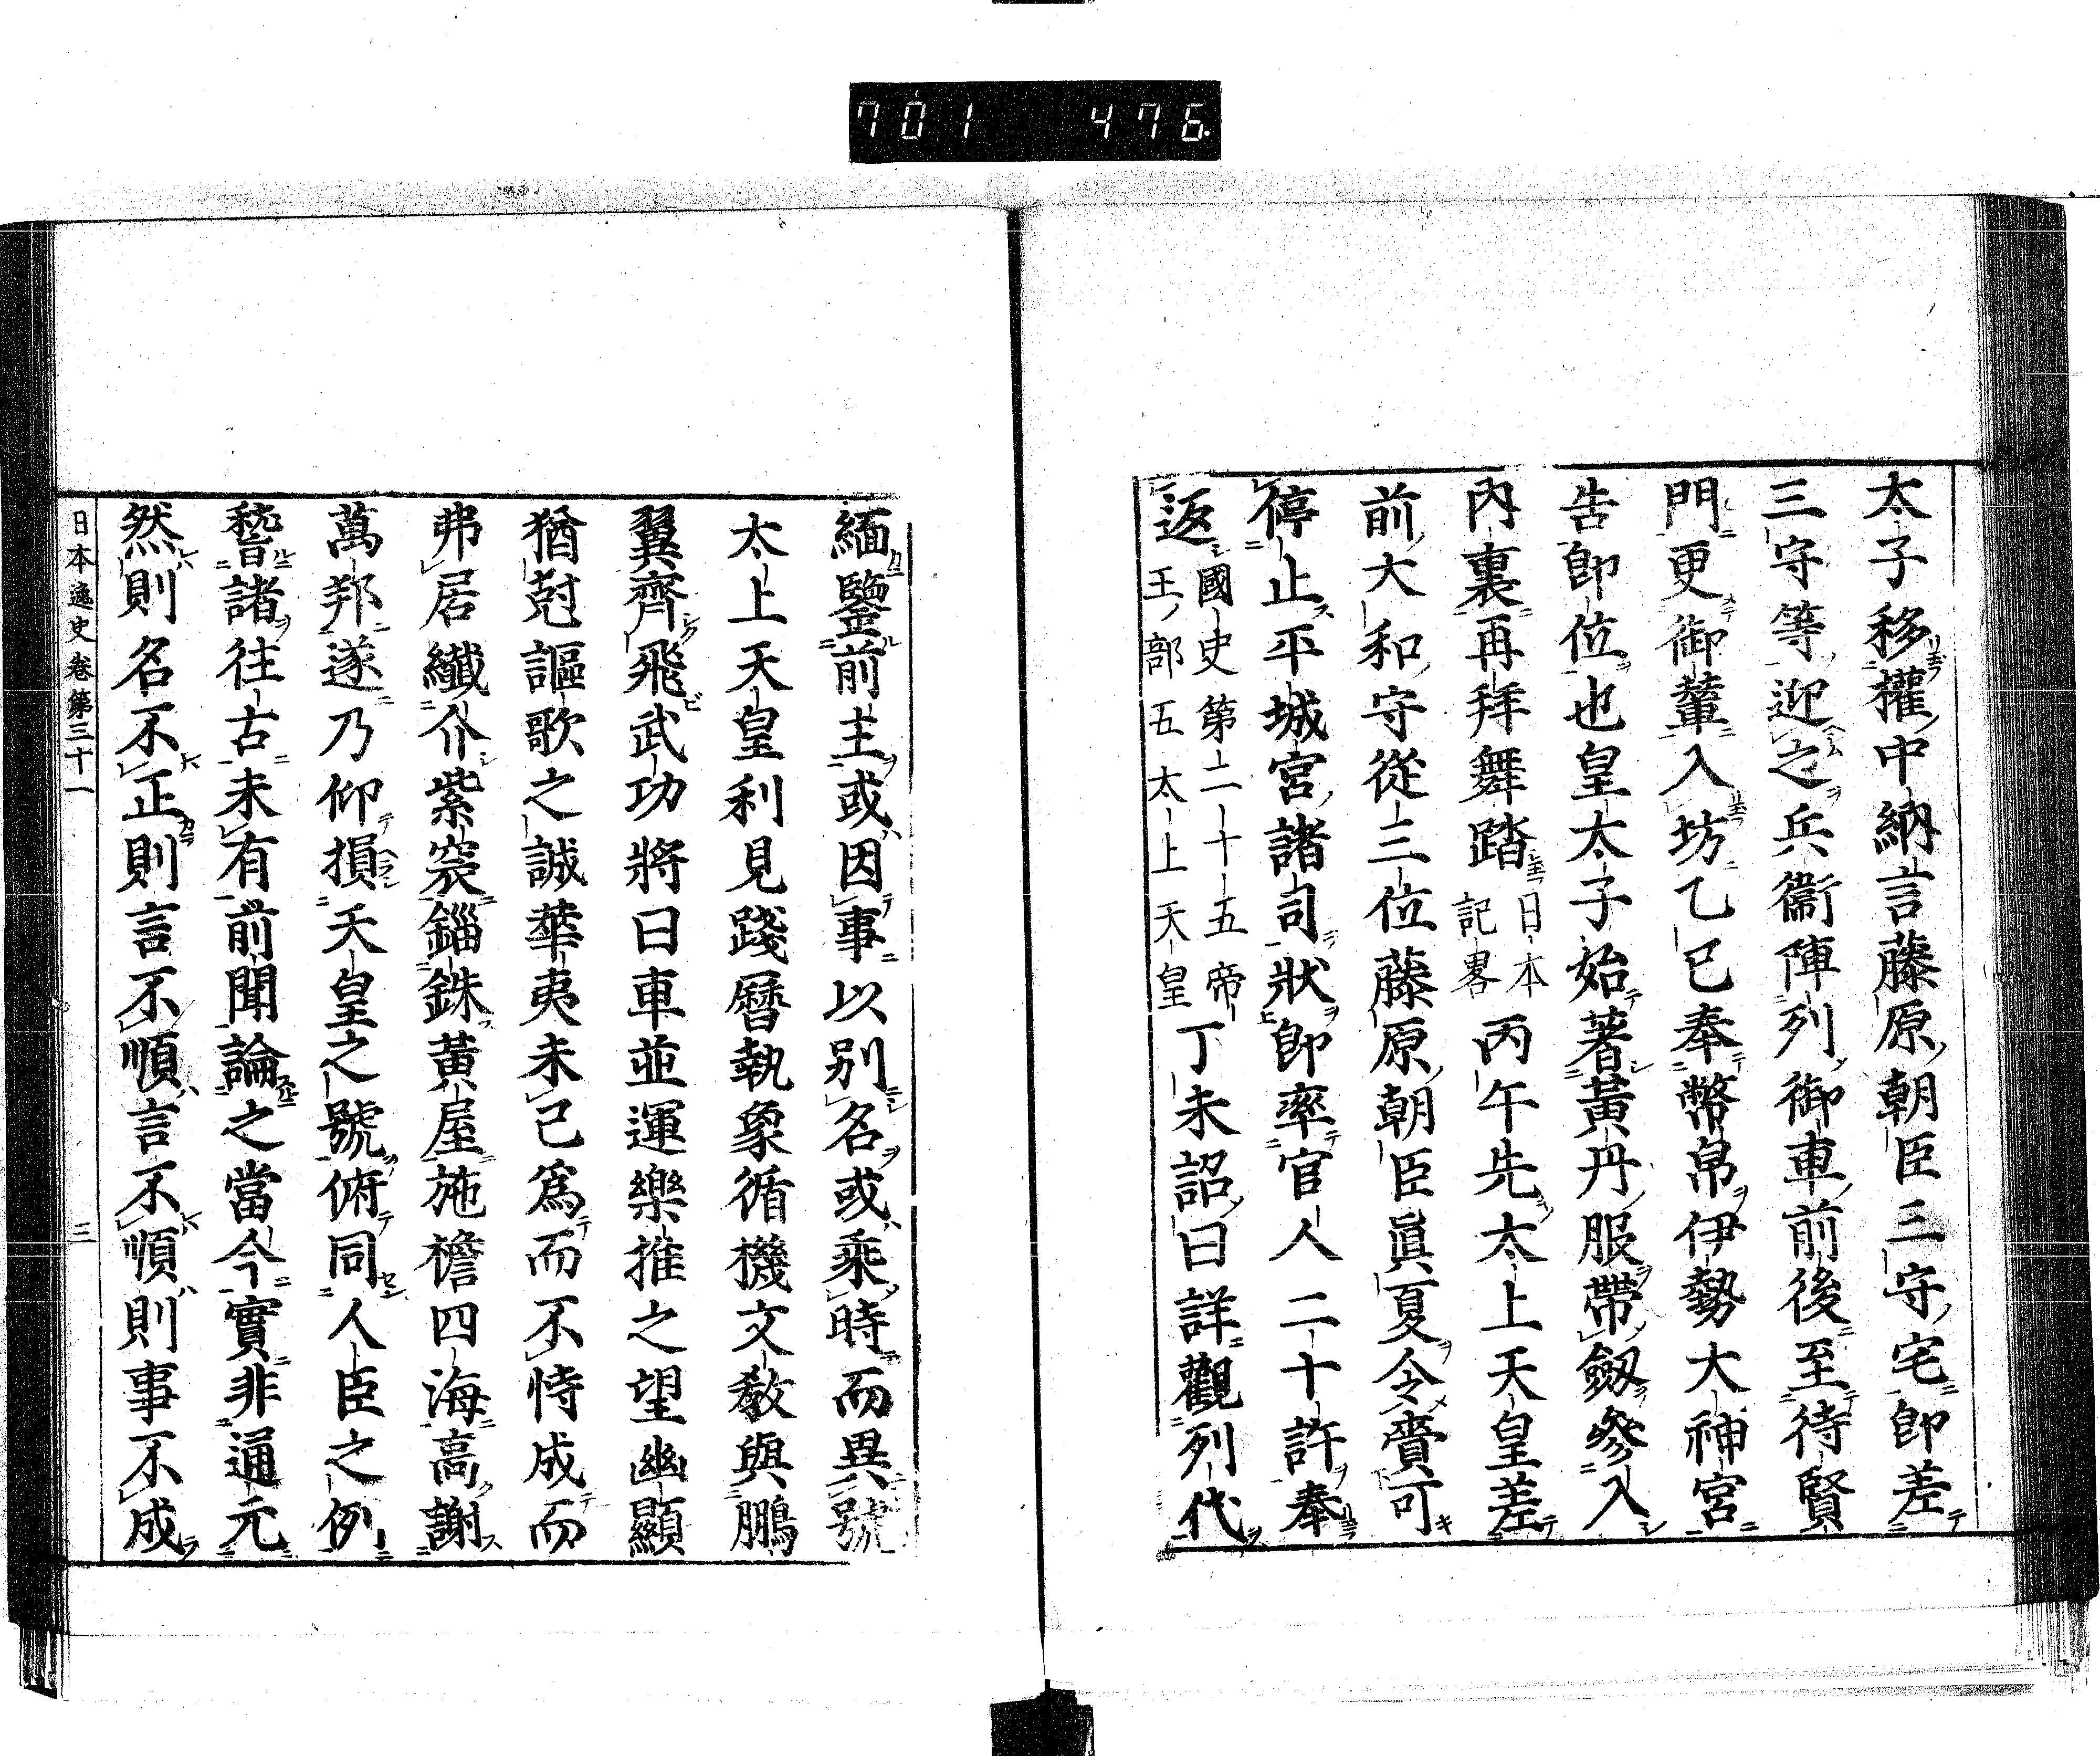 701 476
太子移權中納言藤原朝臣三守宅卽差
三守等迎之兵衞陣列御車前後至待賢
門更御輦入坊乙巳奉幣帛伊勢大神宮
告卽位也皇太子始著黃丹服帶劔參入
內裏再拜舞踏日本記畧丙午先太上天皇差
前大和守從三位藤原朝臣眞夏令賷可
停止平城宮諸司狀卽率官人二十許奉
返國史第二十五帝王部五太上天皇丁未詔曰詳觀列代
緬鑒前主或因事以别名或乘時而異號
太上天皇利見踐曆執象循機文敎與鵬
翼齊飛武功將日車並運樂推之望幽顯
猶尅謳歌之誠華夷未已爲而不恃成而
弗居纖介紫宸錙銖黃屋施檐四海高謝
萬邦遂乃仰損天皇之號俯同人臣之例
稽諸往古未有前聞論之當今實非通元
然則名不正則言不順言不順則事不成
日本逸史卷第三十一 三